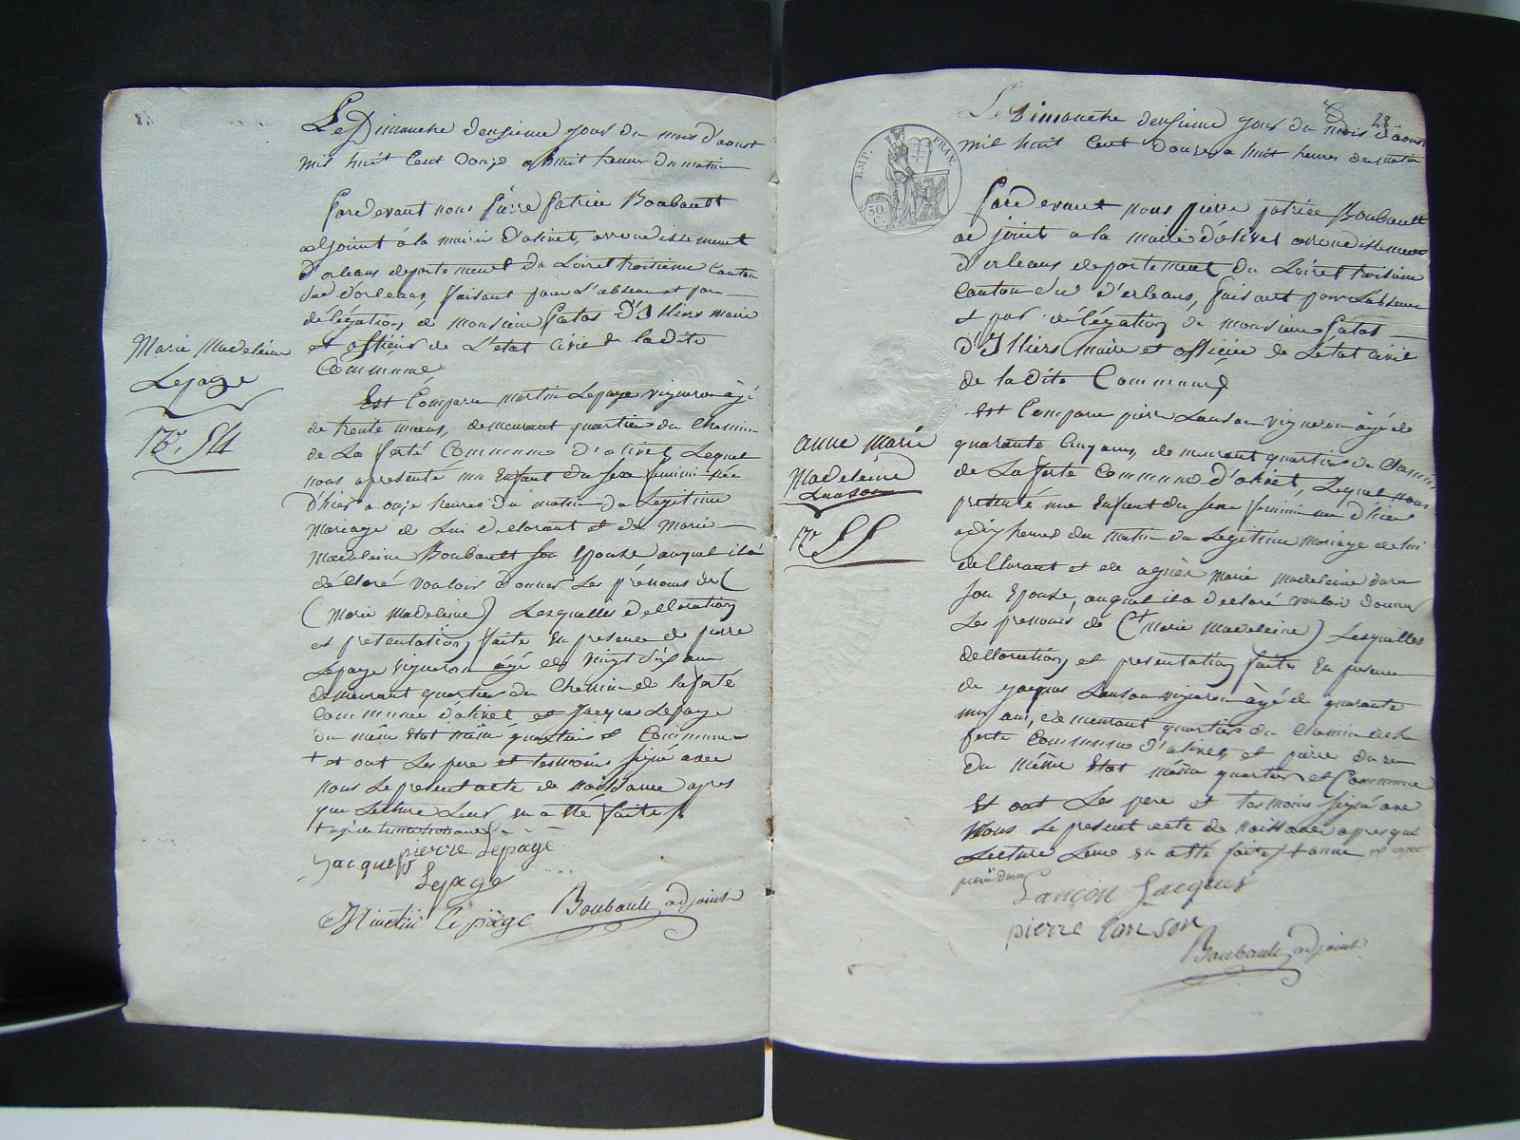 Le Dimanche deusieme jour du mois d'aoust
mil huit Cent douze a huit heures du matin
Pardevant nous Pierre Patrice Boubault
adjoint à la mairie d'olivet, arrondissement
d'orleans departement du Loiret troisieme canton
sud d'orleans, faisant pour L'absence et par
délégation de monsieur Patas D'Illiers maire
et officier de L'etat civil de laditte
Commune
Marie Madeleine
Lepage
Est Comparu martin Lepage vigneron âgé
de trente deux ans, demeurant quartier du Chemin
de La ferté Commune d'olivet Lequel
nous a presenté un Enfant du sexe feminin née
d'hier a onze heures du matin du Legitime
mariage de Lui declarant et de Marie
Madeleine Boubault son Epouse auquel il a
déclaré vouloir donner Les prénoms de
(Marie Madeleine) Lesquelles declaration
et presentation faite En presence de pierre
Lepage vigneron âgé de vingt six ans
demeurant quartier du Chemin de la ferté
commune d'olivet et Jacque Lepage
du même Etat même quartier et Commune +
et ont Les pere et temoins signé avec
nous Le present acte de naissance apres
que Lecture Leur en a été faite
pierre Lepage
Jacques
Lepage
Martin Lepage Boubault adjoint
28
Le Dimanche deusieme jour du mois d'aoust
mil huit Cent douze a huit heures du matin
EMP. FRAN.
50
C.
Pardevant nous pierre patrice Boubault
adjoint a la mairie d'olivet arrondissement
d'orleans departement du Loiret troisieme
Canton sud d'orleans, faisant pour Labsence
et par délégation de monsieur Patas
d'Illiers maire et officier de Letat civil
de la dite Commune
anne marie
Madeleine
Lanson
17e
est Comparu pierre Lanson vigneron âgé de
quarante Cinq ans, demeurant quartier du Chemin
de La ferte Commune d'olivet, Lequel nous
presenté une Enfant du sexe feminin née d'hier
a dix heures du matin du Legitime mariage de lui
declarant et de agnès Marie Madeleine
son Epouse, auquel il a declaré vouloir donner
Les prenoms de (+ Marie Madeleine) Lesquelles
declaration et presentation faites En presence
de jacques Lanson vigneron âgé de quarante
ans, demeurant quartier du Chemin de la
ferté Commune d'olivet et pierre
du même Etat même quartier et Commune
Et ont Les pere et temoins signé avec
Nous Le present acte de naissance apres que
Lecture Leur en a été faite + anne
Lanson Jacques
pierre Lanson
Boubault adjoint